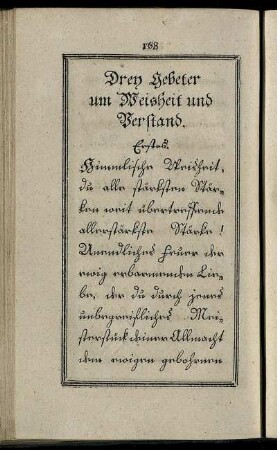 168
Drey Gebeter
um Weisheit und
Verstand.
Erstes.
Himmlische Weisheit,
du alle stärksten Stär-
ken weit übertreffende
allerstärkste Stärke!
Unendliches Feuer der
ewig erbarmenden Lie-
be, der du durch jenes
unbegreifliches Mei-
sterstuck deiner Allmacht
dem ewigen gebohrnen